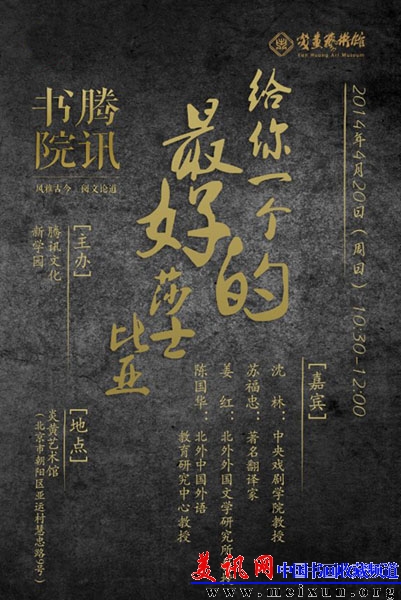 炎黄艺術馆
Yan Huang Art Museum
2014年4月20日（周日）10:30-12:00
给你一个
最好的
莎士
比亚
腾讯
书院
风雅古今 阅文论道
［主办］
腾讯文化
新学园
［嘉宾］
沈 林：中央戏剧学院教授
苏福忠：著名翻译家
姜 红：北外外国文学研究所
陈国华：北外中国外语
教育研究中心教授
［地点］
炎黄艺术馆
（北京市朝阳区亚运村慧忠路9号）
美讯网 中国书画收藏频道
www.meixun.org